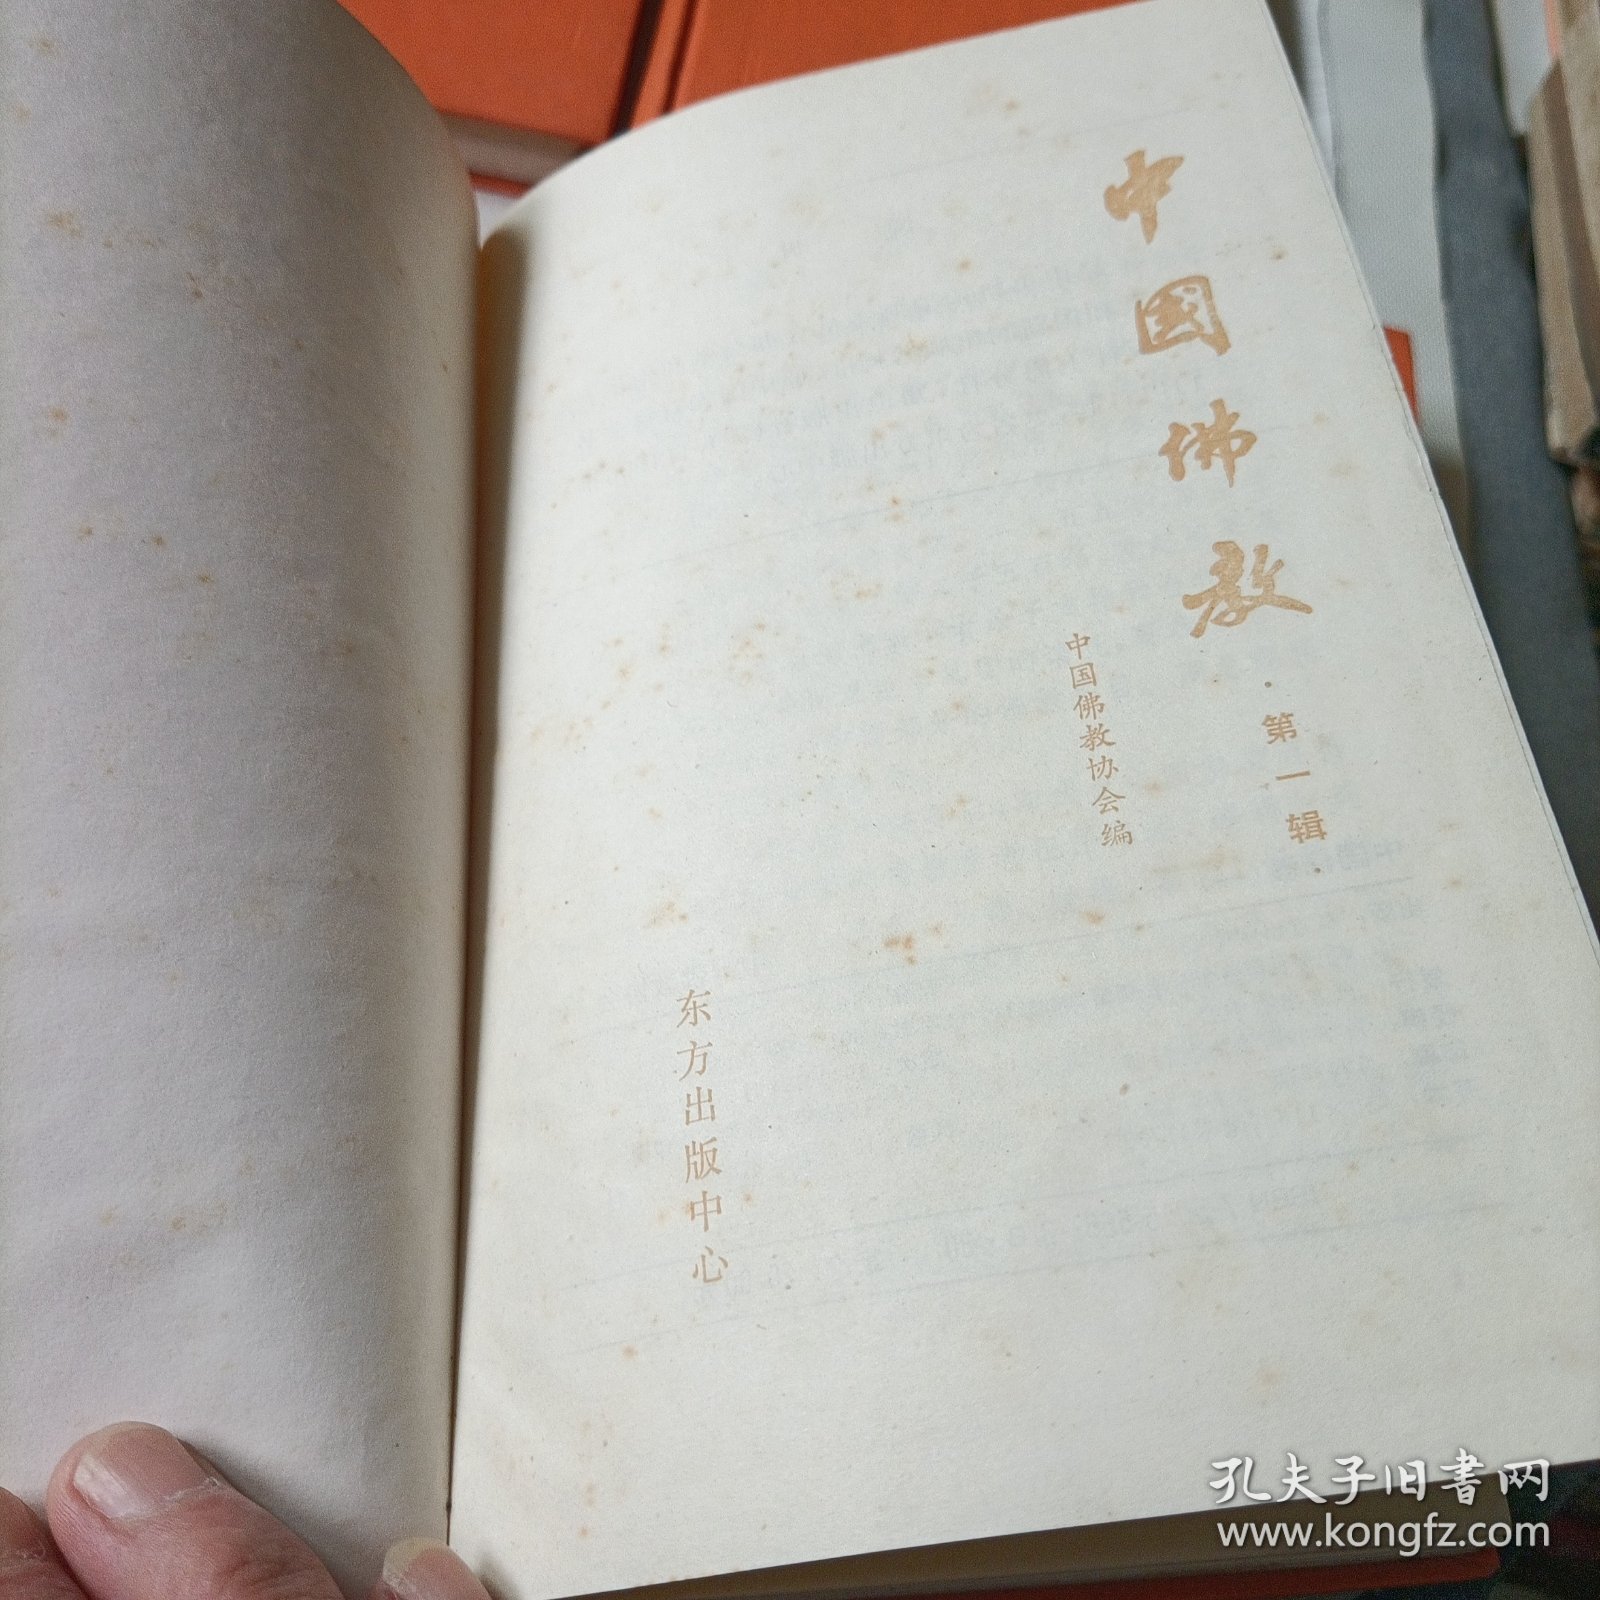 中國佛教
·第一辑·
中国佛教协会编
东方出版中心
孔夫子旧书网
www.kongfz.com